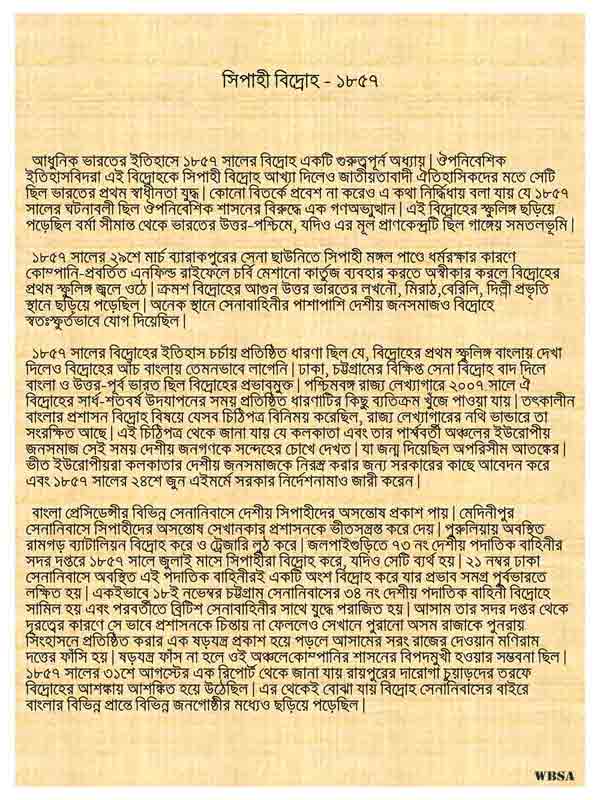 সিপাহী বিদ্রোহ - ১৮৫৭
আধুনিক ভারতের ইতিহাসে ১৮৫৭ সালের বিদ্রোহ একটি গুরুত্বপূর্ন অধ্যায় | ঔপনিবেশিক
ইতিহাসবিদরা এই বিদ্রোহকে সিপাহী বিদ্রোহ আখ্যা দিলেও জাতীয়তাবাদী ঐতিহাসিকদের মতে সেটি
ছিল ভারতের প্রথম স্বাধীনতা যুদ্ধ | কোনো বিতর্কে প্রবেশ না করেও এ কথা নির্দ্ধিধায় বলা যায় যে ১৮৫৭
সালের ঘটনাবলী ছিল ঔপনিবেশিক শাসনের বিরুদ্ধে এক গণঅভ্যুত্থান | এই বিদ্রোহের স্ফুলিঙ্গ ছড়িয়ে
পড়েছিল বর্মা সীমান্ত থেকে ভারতের উত্তর-পশ্চিমে, যদিও এর মূল প্রাণকেন্দ্রটি ছিল গাঙ্গেয় সমতলভূমি |
১৮৫৭ সালের ২৯শে মার্চ ব্যারাকপুরের সেনা ছাউনিতে সিপাহী মঙ্গল পাণ্ডে ধর্মরক্ষার কারণে
কোম্পানি-প্রবর্তিত এনফিল্ড রাইফেলে চর্বি মেশানো কার্তুজ ব্যবহার করতে অস্বীকার করলে বিদ্রোহের
প্রথম স্ফুলিঙ্গ জ্বলে ওঠে | ক্রমশ বিদ্রোহের আগুন উত্তর ভারতের লখনৌ, মিরাঠ,বেরিলি, দিল্লী প্রভৃতি
স্থানে ছড়িয়ে পড়েছিল | অনেক স্থানে সেনাবাহিনীর পাশাপাশি দেশীয় জনসমাজও বিদ্রোহে
স্বতঃস্ফূর্তভাবে যোগ দিয়েছিল |
১৮৫৭ সালের বিদ্রোহের ইতিহাস চর্চায় প্রতিষ্ঠিত ধারণা ছিল যে, বিদ্রোহের প্রথম স্ফুলিঙ্গ বাংলায় দেখা
দিলেও বিদ্রোহের আঁচ বাংলায় তেমনভাবে লাগেনি | ঢাকা, চট্টগ্রামের বিক্ষিপ্ত সেনা বিদ্রোহ বাদ দিলে
বাংলা ও উত্তর-পূর্ব ভারত ছিল বিদ্রোহের প্রভাবমুক্ত | পশ্চিমবঙ্গ রাজ্য লেখ্যাগারে ২০০৭ সালে ঐ
বিদ্রোহের সার্ধ-শতবর্ষ উদযাপনের সময় প্রতিষ্ঠিত ধারণাটির কিছু ব্যতিক্রম খুঁজে পাওয়া যায় | তৎকালীন
বাংলার প্রশাসন বিদ্রোহ বিষয়ে যেসব চিঠিপত্র বিনিময় করেছিল, রাজ্য লেখ্যাগারের নথি ভান্ডারে তা
সংরক্ষিত আছে | এই চিঠিপত্র থেকে জানা যায় যে কলকাতা এবং তার পার্শ্ববর্তী অঞ্চলের ইউরোপীয়
জনসমাজ সেই সময় দেশীয় জনগণকে সন্দেহের চোখে দেখত | যা জন্ম দিয়েছিল অপরিসীম আতঙ্কের |
ভীত ইউরোপীয়রা কলকাতার দেশীয় জনসমাজকে নিরস্ত্র করার জন্য সরকারের কাছে আবেদন করে
এবং ১৮৫৭ সালের ২৪শে জুন এইমর্মে সরকার নির্দেশনামাও জারী করেন |
বাংলা প্রেসিডেন্সীর বিভিন্ন সেনানিবাসে দেশীয় সিপাহীদের অসন্তোষ প্রকাশ পায় | মেদিনীপুর
সেনানিবাসে সিপাহীদের অসন্তোষ সেখানকার প্রশাসনকে ভীতসন্ত্রস্ত করে দেয় | পুরুলিয়ায় অবস্থিত
রামগড় ব্যাটালিয়ন বিদ্রোহ করে ও ট্রেজারি লুঠ করে | জলপাইগুড়িতে ৭৩ নং দেশীয় পদাতিক বাহিনীর
সদর দপ্তরে ১৮৫৭ সালে জুলাই মাসে সিপাহীরা বিদ্রোহ করে, যদিও সেটি ব্যর্থ হয় | ২১ নম্বর ঢাকা
সেনানিবাসে অবস্থিত এই পদাতিক বাহিনীরই একটি অংশ বিদ্রোহ করে যার প্রভাব সমগ্র পূর্বভারতে
লক্ষিত হয় | একইভাবে ১৮ই নভেম্বর চট্টগ্রাম সেনানিবাসের ৩৪ নং দেশীয় পদাতিক বাহিনী বিদ্রোহে
সামিল হয় এবং পরবর্তীতে ব্রিটিশ সেনাবাহিনীর সাথে যুদ্ধে পরাজিত হয় | আসাম তার সদর দপ্তর থেকে
দূরত্বের কারণে সে ভাবে প্রশাসনকে চিন্তায় না ফেললেও সেখানে পুরানো অসম রাজাকে পুনরায়
সিংহাসনে প্রতিষ্ঠিত করার এক ষড়যন্ত্র প্রকাশ হয়ে পড়লে আসামের সরং রাজের দেওয়ান মণিরাম
দত্তের ফাঁসি হয় | ষড়যন্ত্র ফাঁস না হলে ওই অঞ্চলেকোম্পানির শাসনের বিপদমুখী হওয়ার সম্ভবনা ছিল |
১৮৫৭ সালের ৩১শে আগস্টের এক রিপোর্ট থেকে জানা যায় রায়পুরের দারোগা চুয়াড়দের তরফে
বিদ্রোহের আশঙ্কায় আশঙ্কিত হয়ে উঠেছিল | এর থেকেই বোঝা যায় বিদ্রোহ সেনানিবাসের বাইরে
বাংলার বিভিন্ন প্রান্তে বিভিন্ন জনগোষ্ঠীর মধ্যেও ছড়িয়ে পড়েছিল |
WBSA